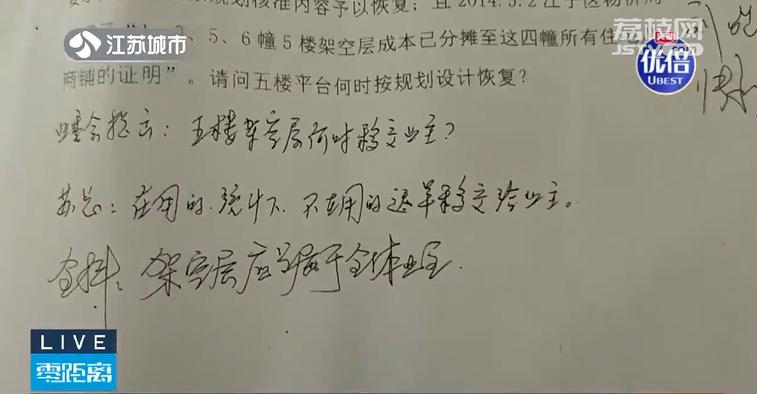 规划核准内容予以恢复；且 2014.5.2 江宁区物价局
、5、6 幢 5 楼架空层成本已分摊至这四幢所有住
商铺的证明”。请问五楼平台何时按规划设计恢复？
江苏城市
荔枝网
JSTV.COM
优倍
UBEST
指出：五楼架空层何时移交业主？
苏总：在用的统计下，不在用的逐单移交给业主。
架空层应归属于全体业主.
LIVE
零距离